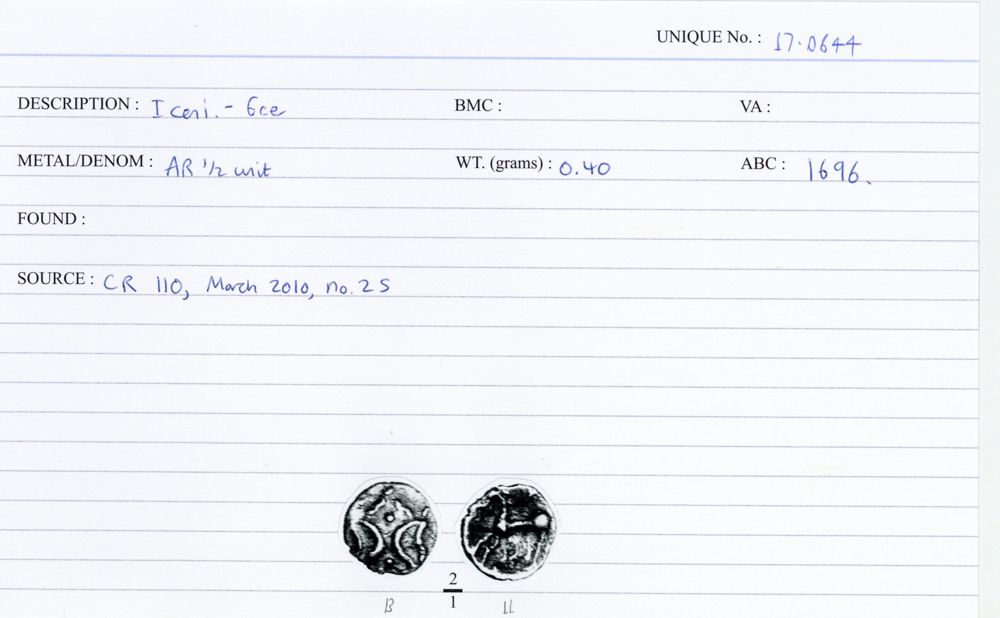 UNIQUE No. : 17.0644
DESCRIPTION : Iceni. - Ece BMC : VA :
METAL/DENOM : AR 1/2 unit WT. (grams) : 0.40 ABC : 1696.
FOUND :
SOURCE : CR 110, March 2010, no. 25
2
1
B